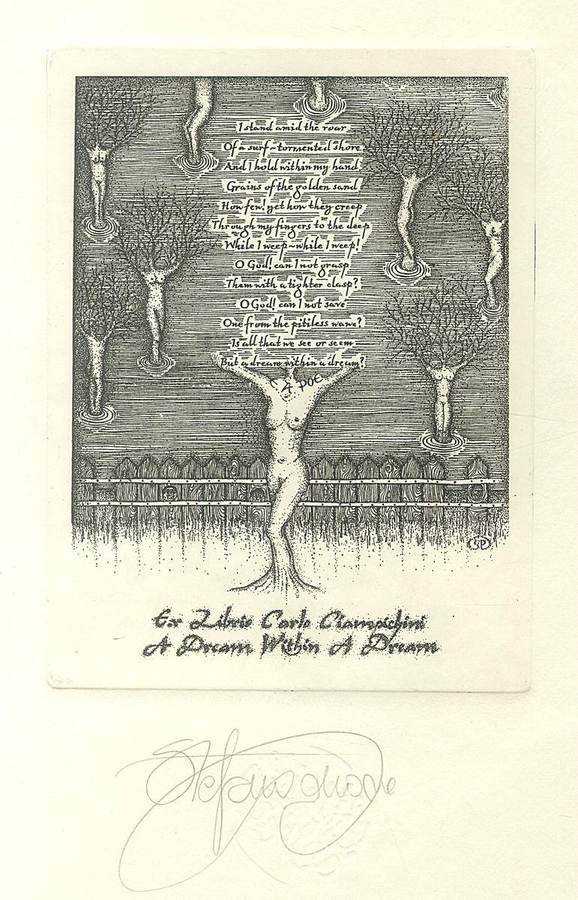 I stand amid the roar
Of a surf-tormented shore
And I hold within my hand
Grains of the golden sand
How few! yet how they creep
Through my fingers to the deep
While I weep-while I weep!
O God! can I not grasp
Them with a tighter clasp?
O God! can I not save
One from the pitiless wave?
Is all that we see or seem
But a dream within a dream?
POE
Ex Libris Carlo Ciampichini
A Dream Within A Dream